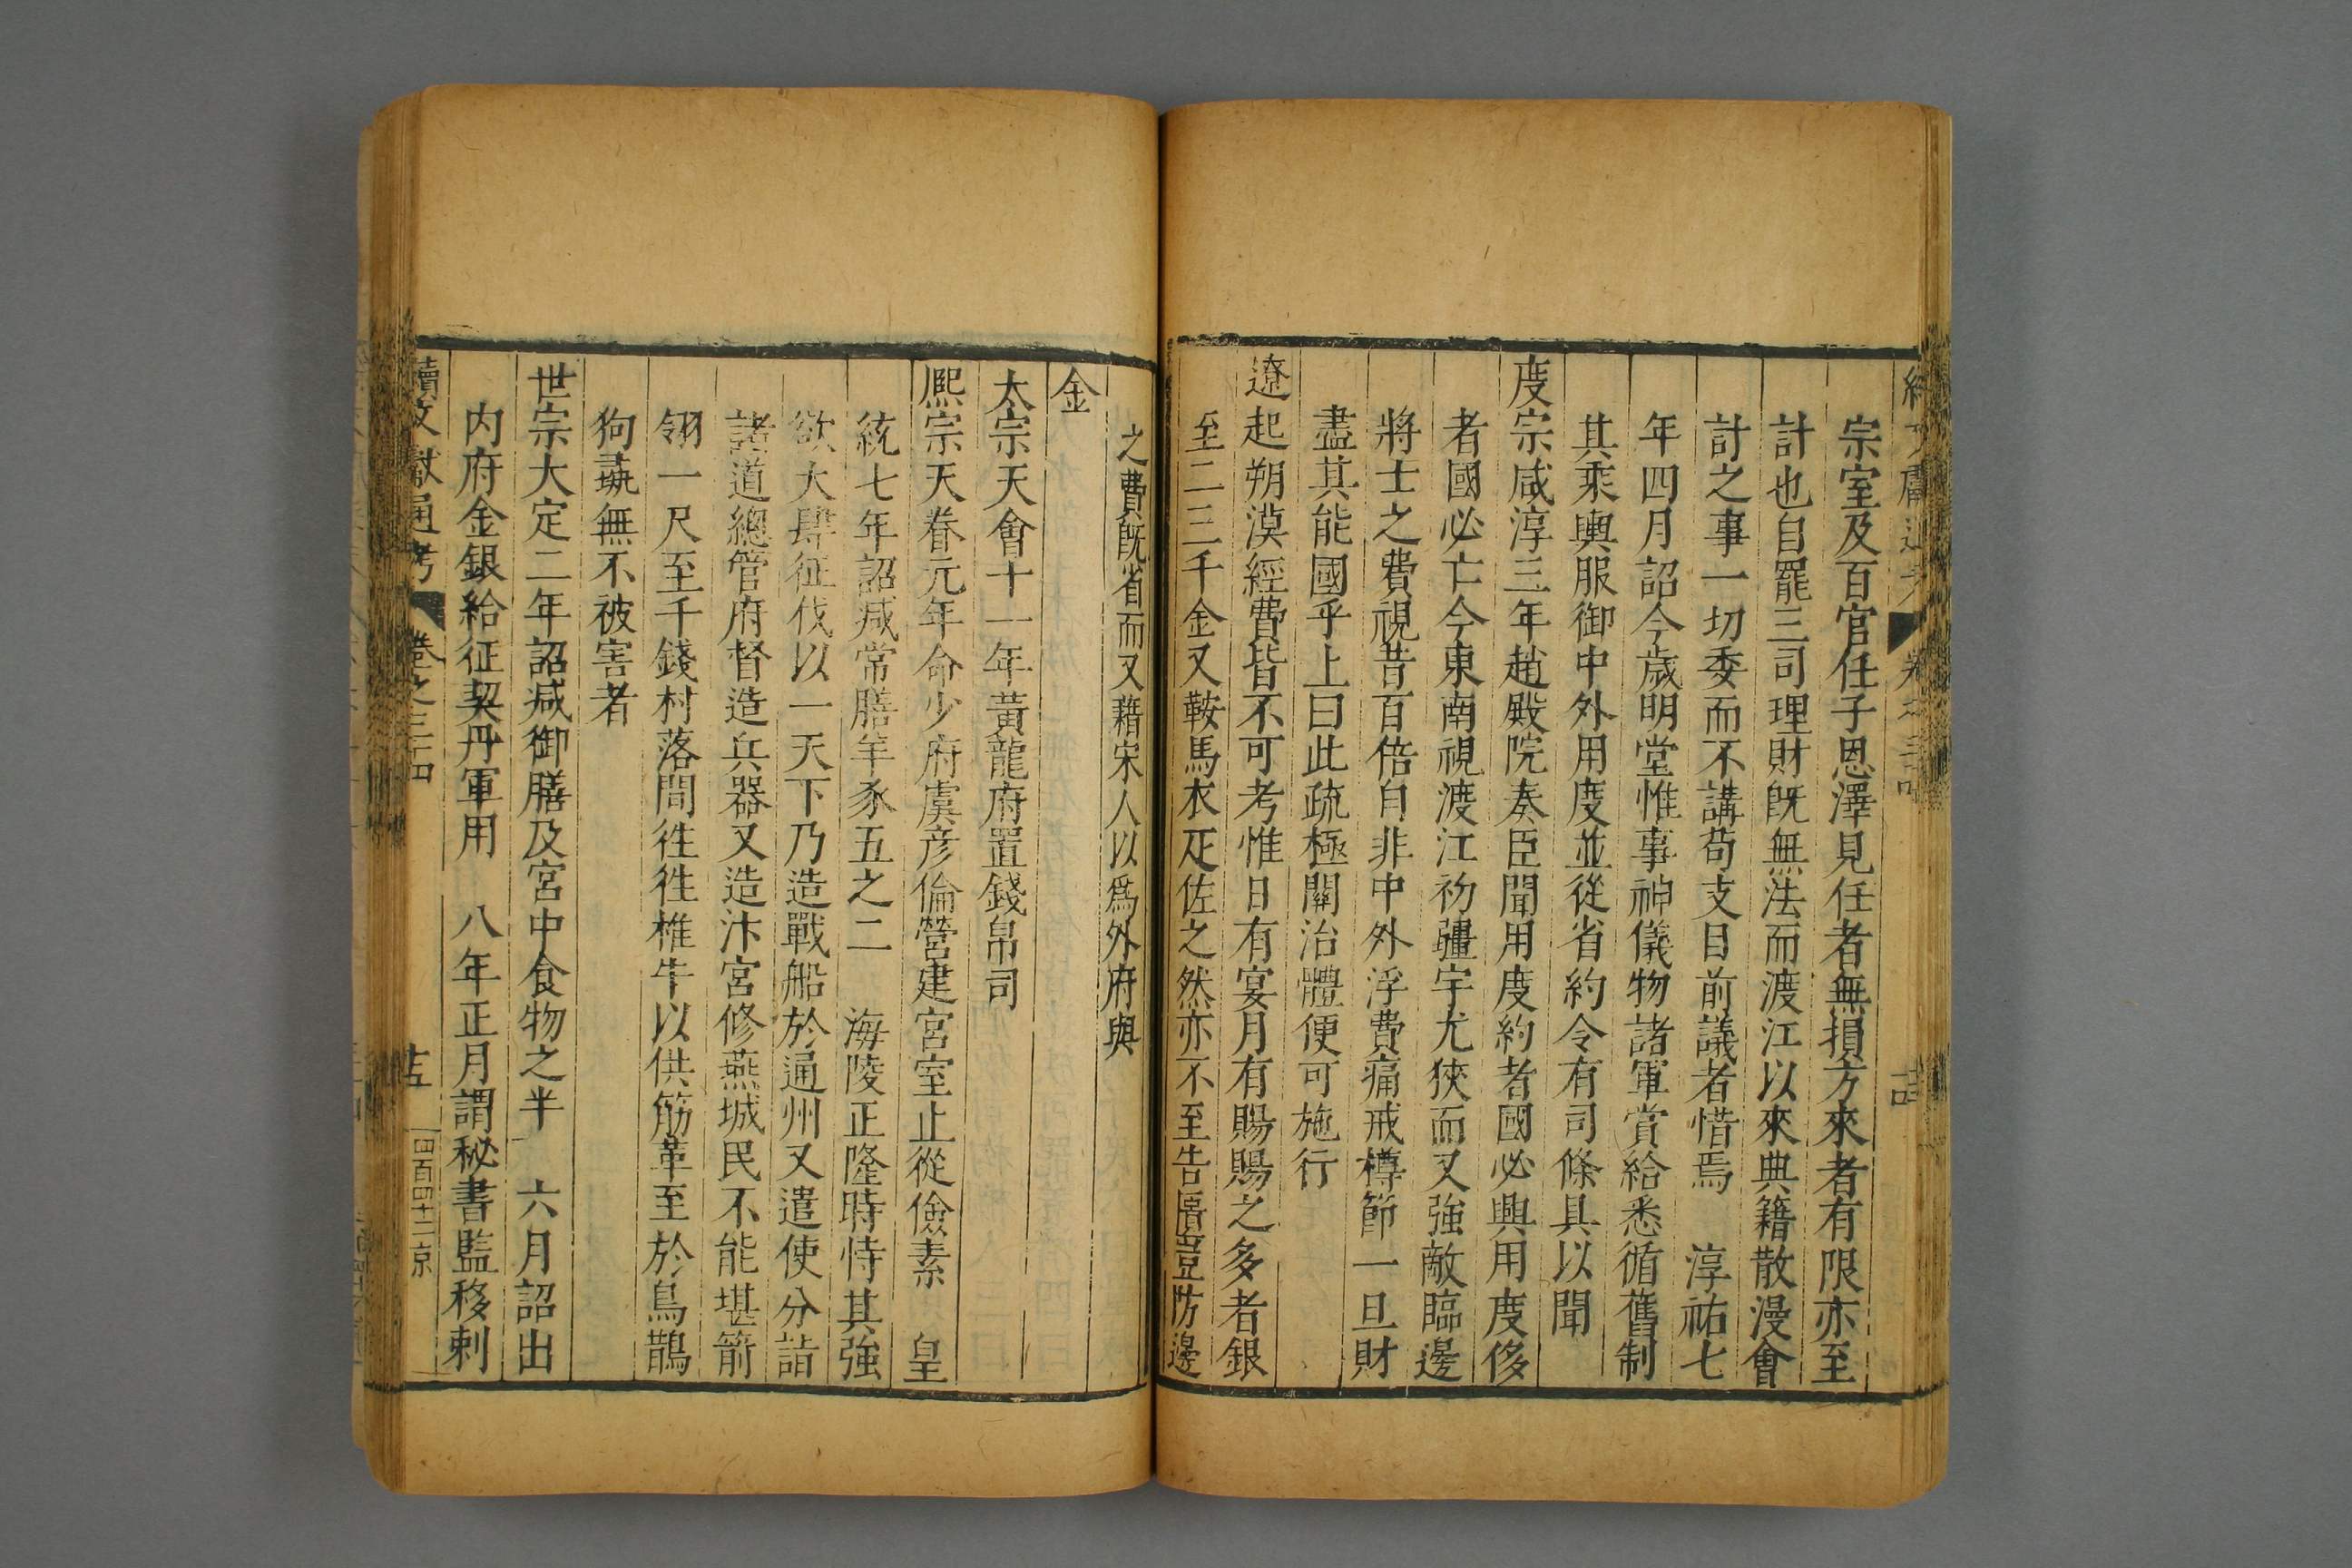 續文獻通考 卷之三四 十四
宗室及百官任子恩澤見任者無損方來者有限亦至
計也自罷三司理財旣無法而渡江以來典籍散漫會
計之事一切委而不講苟支目前議者惜焉 淳祐七
年四月詔今歲明堂惟事神儀物諸軍賞給悉循舊制
其乘輿服御中外用度並從省約令有司條具以聞
度宗咸淳三年趙殿院奏臣聞用度約者國必興用度侈
者國必亡今東南視渡江初疆宇尤狹而又強敵臨邊
將士之費視昔百倍自非中外浮費痛戒樽節一旦財
盡其能國乎上曰此疏極關治體便可施行
遼起朔漠經費皆不可考惟日有宴月有賜賜之多者銀
至二三千金又鞍馬衣疋佐之然亦不至告匱豈防邊
之費旣省而又藉宋人以爲外府與
金
太宗天會十一年黃龍府置錢帛司
熙宗天眷元年命少府虞彦倫營建宮室止從儉素 皇
統七年詔减常膳羊豕五之二 海陵正隆時恃其強
欲大肆征伐以一天下乃造戰船於通州又遣使分詣
諸道總管府督造兵器又造汴宮修燕城民不能堪箭
翎一尺至千錢村落間徃徃椎牛以供筋革至於烏鵲
狗彘無不被害者
世宗大定二年詔减御膳及宮中食物之半 六月詔出
内府金銀給征契丹軍用 八年正月謂秘書監移剌
續文獻通考 卷之三四 十五 四百四十二 京